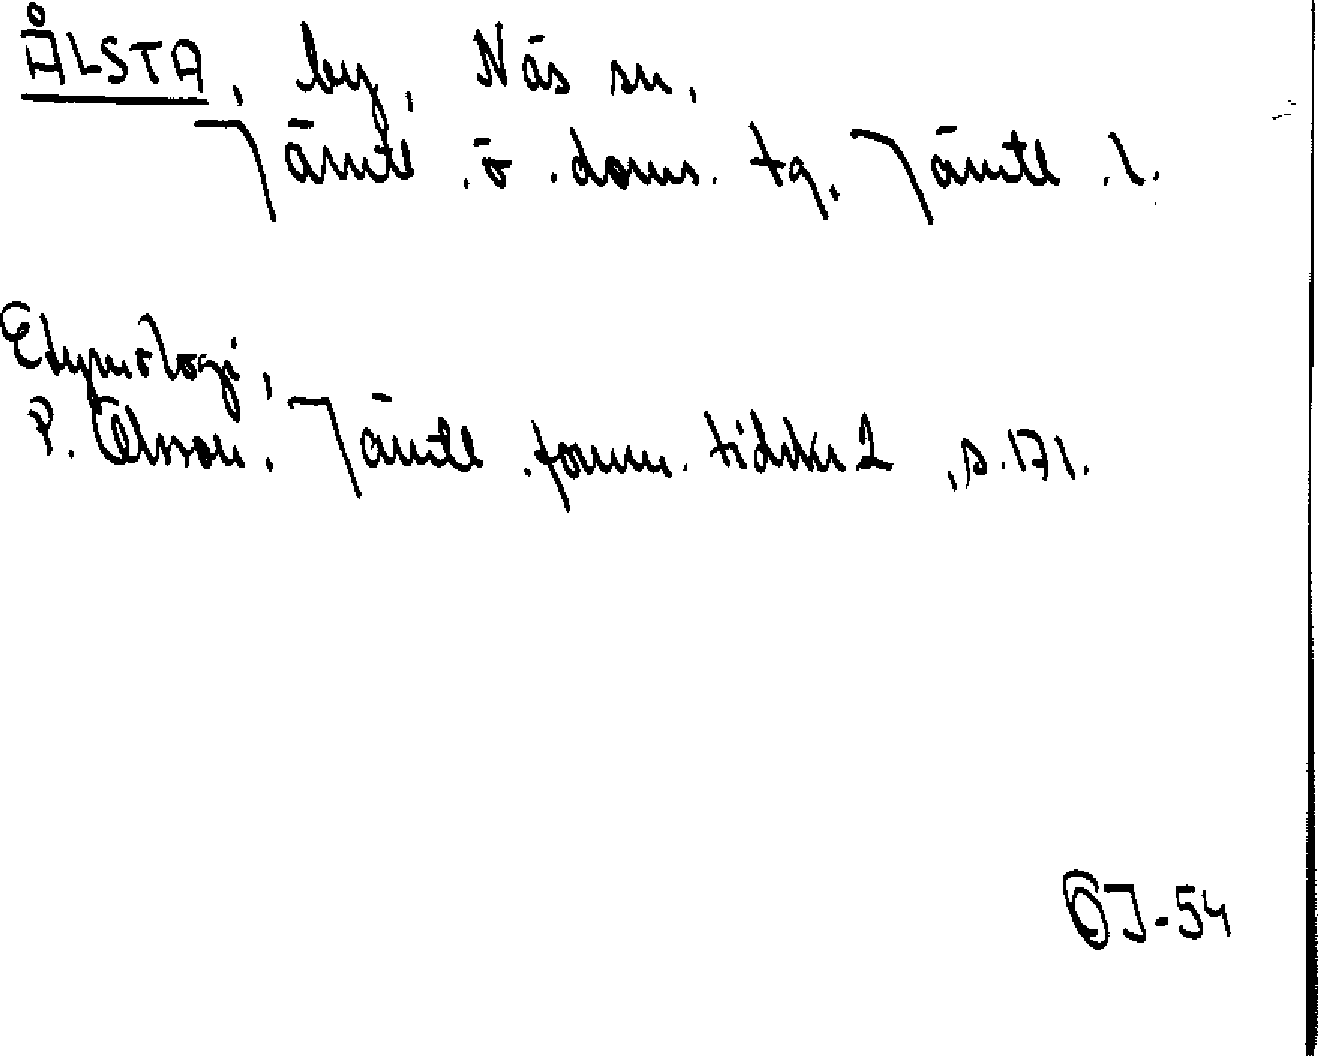 ÅLSTA, by, Näs sn,
Jämtl. ö. doms. tg. Jämtl. l.
Etymologi,
P. Olsson. Jämtl. fornm. tidskr 2, s. 171.
OJ-54